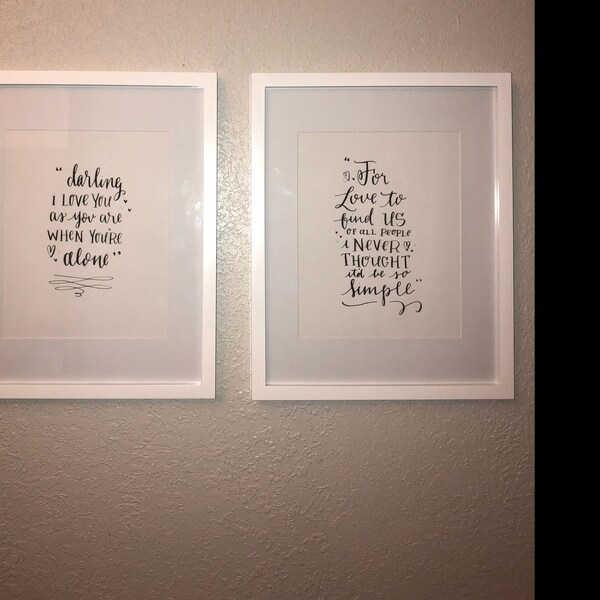 “darling
I LOVE YOU
as you are
WHEN YOU'RE
alone”
“For
Love to
find US
OF ALL PEOPLE
i NEVER
THOUGHT
it'd be so
simple”